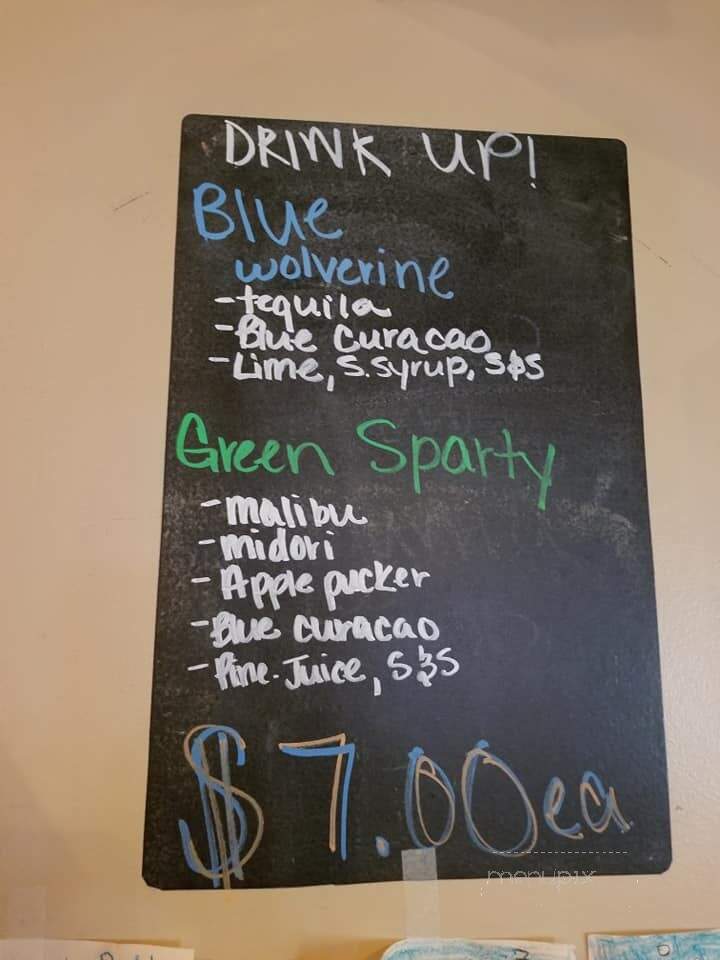 DRINK UP!
Blue
wolverine
-tequila
-Blue Curacao
-Lime, S.Syrup, S&S
Green Sparty
-malibu
-midori
-Apple pucker
-Blue curacao
-Pine. Juice, S&S
$7.00 ea
menupix